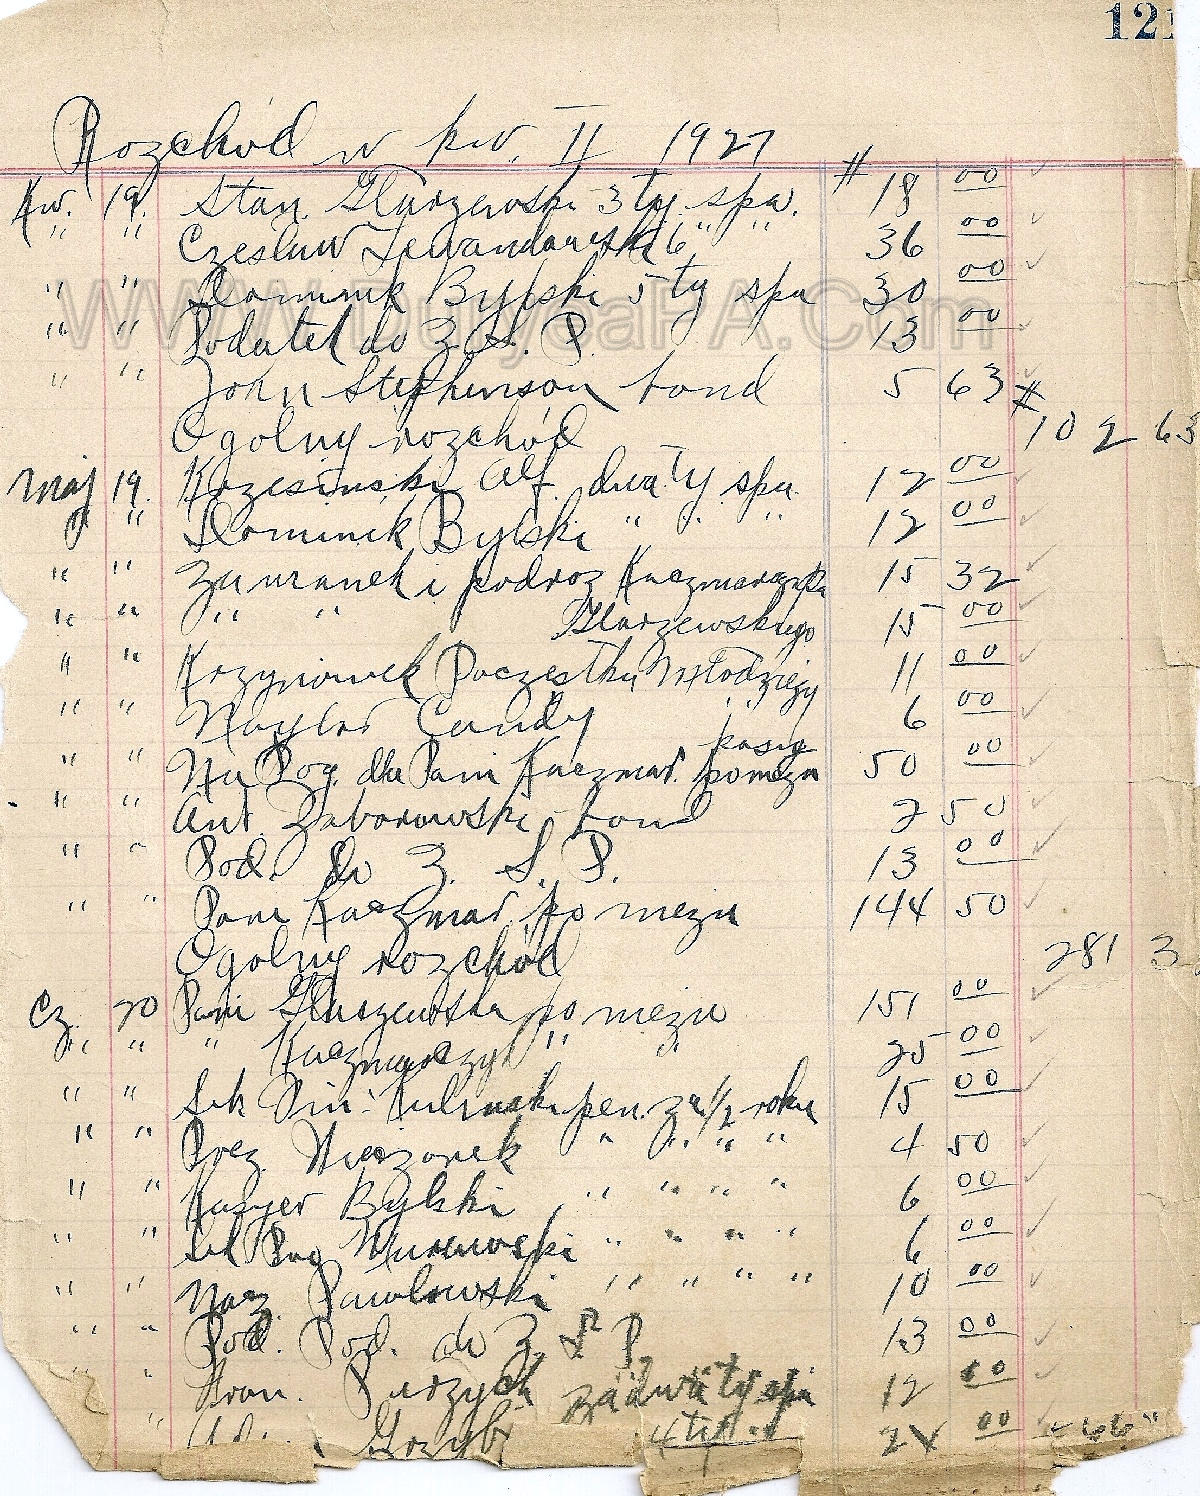 121
Rozchód w kw. II 1927
Kw. 19. Stan. Glurzewski 3 ty. spa. # 18 00
" " Czeslaw Lewandowski 6 " " 36 00
" " Dominik Bylski 5 ty spa 30 00
" " Podatek do Z. S. P. 13 00
" " John Stephenson bond 5 63
Ogolny rozchód # 102 63
Maj 19. Krzesinski Alf. dwa ty spa. 12 00
" " Dominik Bylski " " " 12 00
" " i podroz Kaczmarczyka 15 32
" " " " Glurzewskiego 15 00
" " Młodzieży 11 00
" " Naylor Candy 6 00
" " Na Pog. dla Pani Kaczmar. po mezu 50 00
" " Ant. Zaborowski bond 2 50
" " Pod. do Z. S. P. 13 00
" " Pani Kaczmar. po mezu 144 50
Ogolny rozchód 281 3
Cz. 20 Pani Glurzewska po mezu 151 00
" " " Kaczmarczyk " " 25 00
" " Sek Fin. pen. za 1/2 roku 15 00
" " Prez. Wieczorek " " " " 4 50
" " Kasyer Bylski " " " " 6 00
" " Sek " " " " 6 00
" " Pawlowski " " " " 10 00
" " Pod. Pod. do Z. S. P. 13 00
" za dwa ty spa 12 00
" Grzyb 4 ty 24 00 266